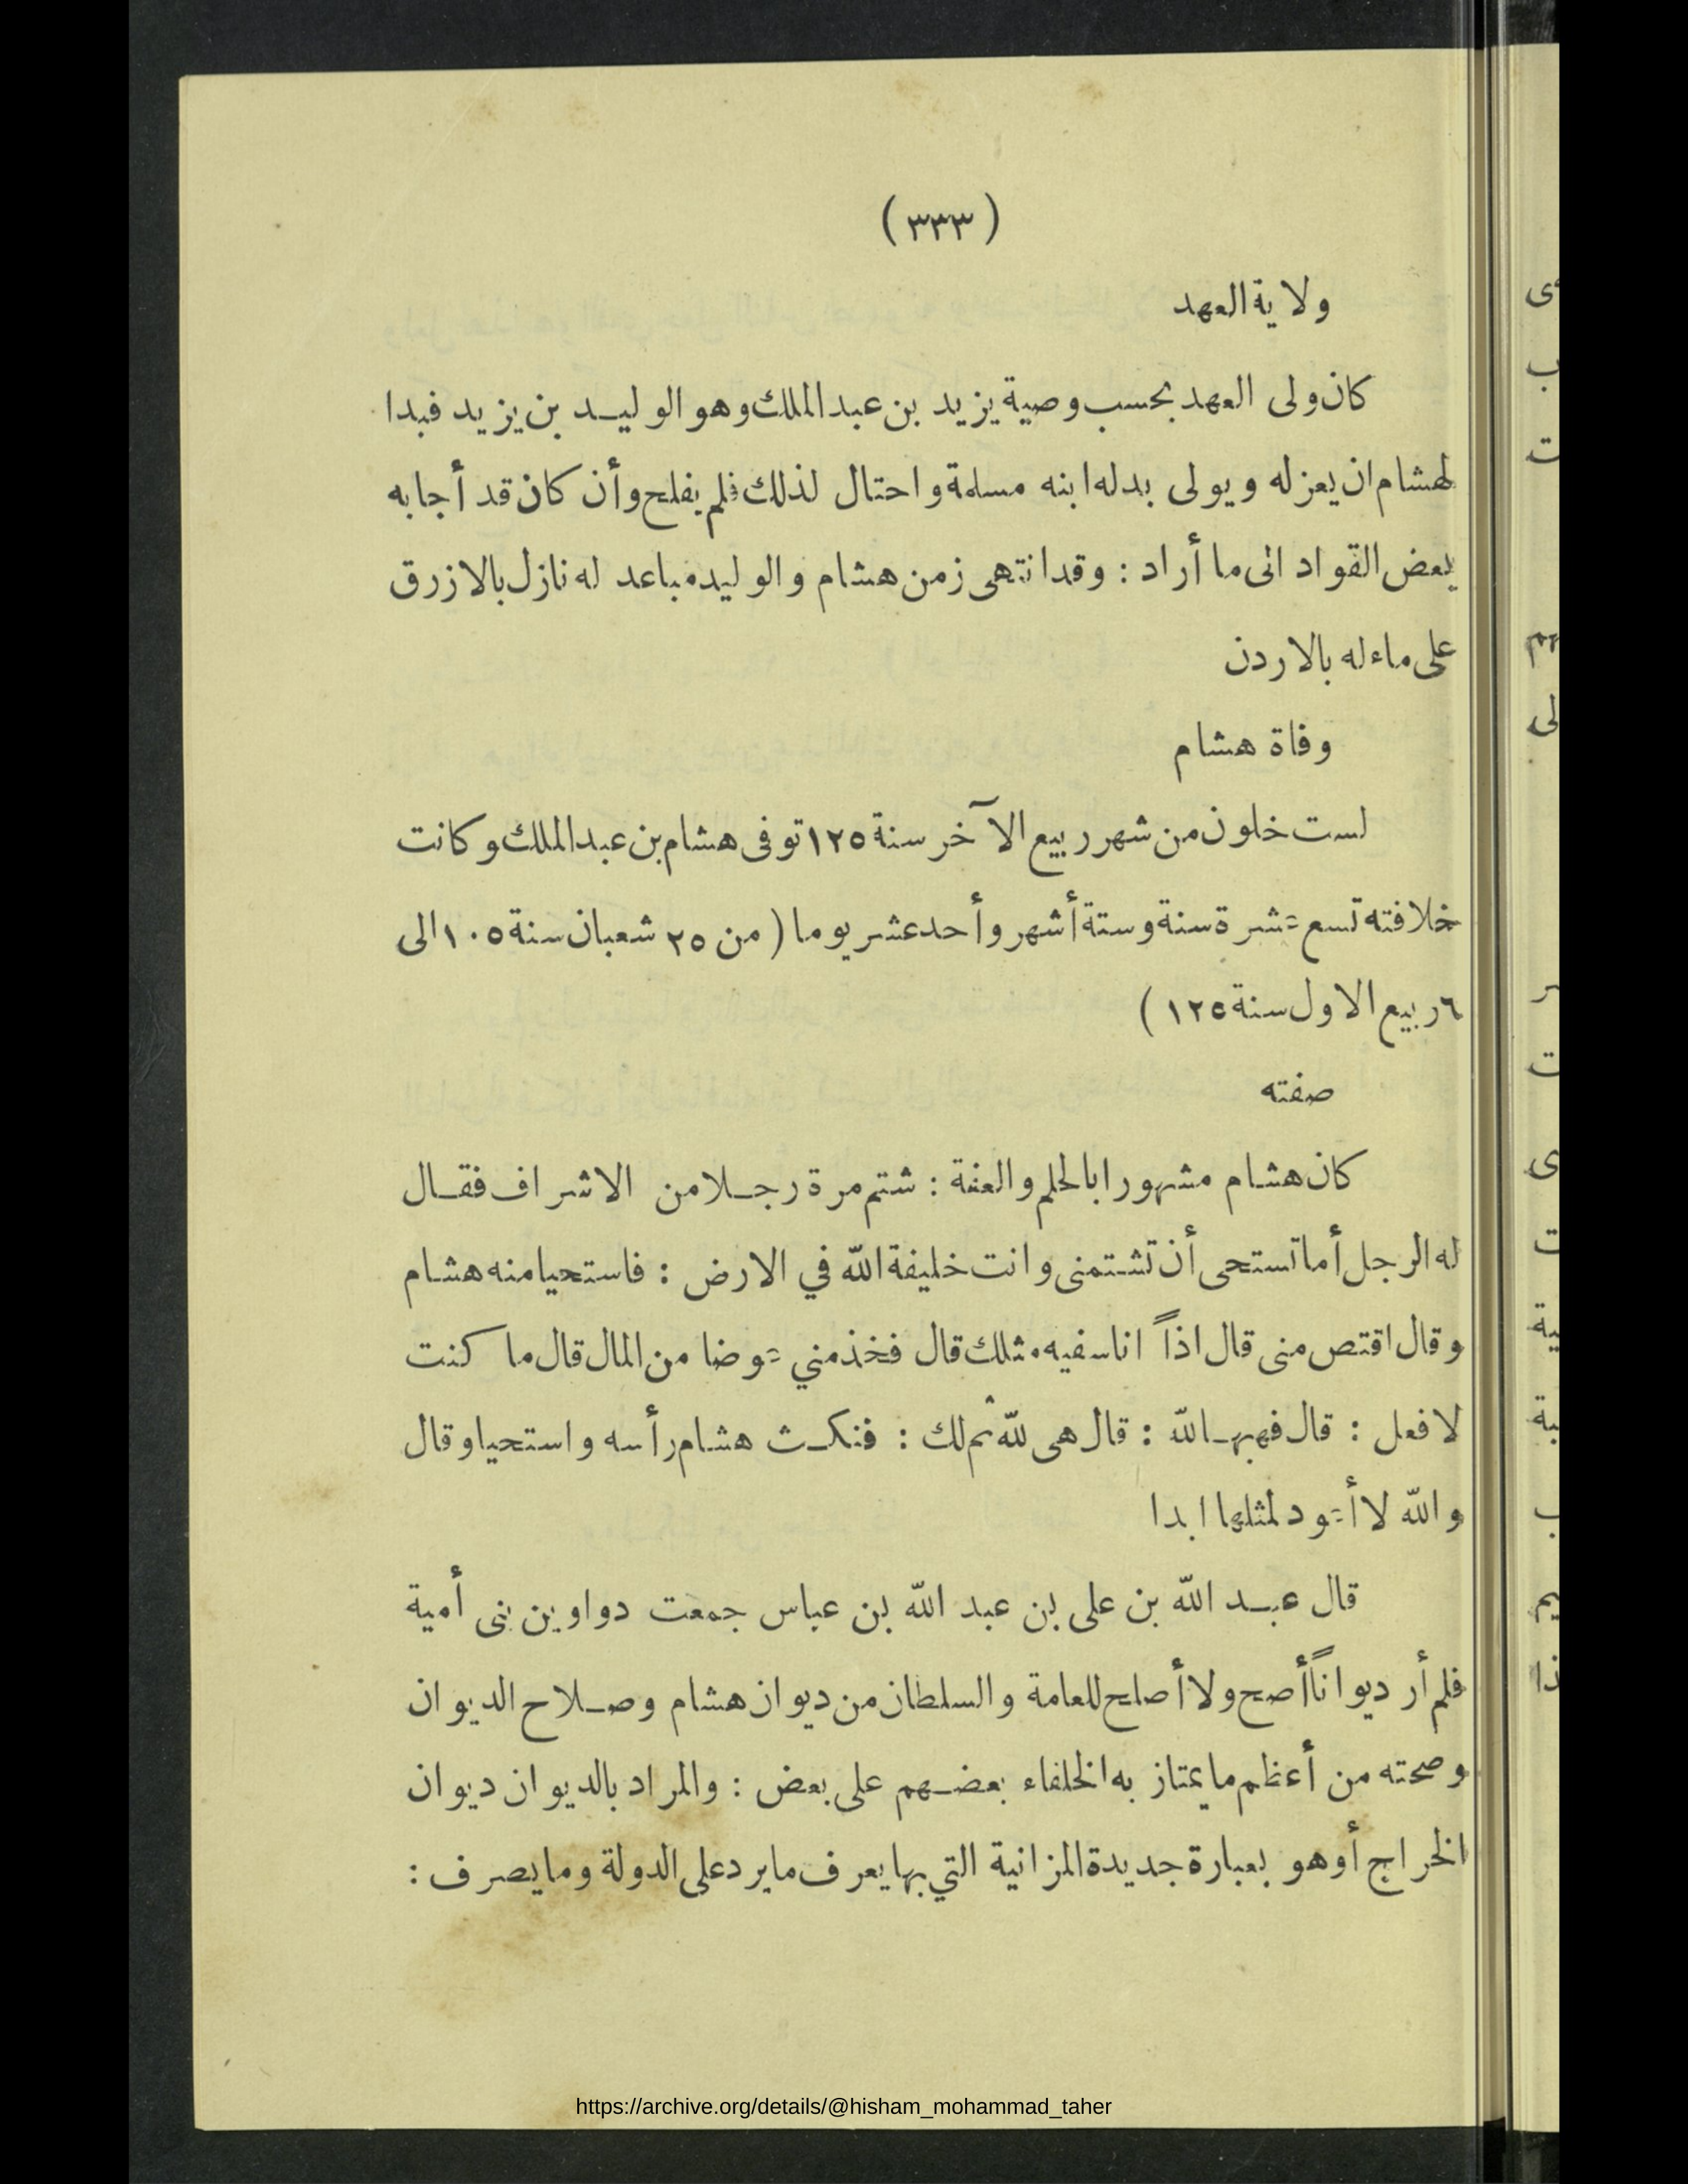 (٣٣٣)
ولاية العهد
كان ولى العهد بحسب وصية يزيد بن عبد الملك وهو الوليد بن يزيد فبدا
لهشام ان يعزله ويولى بدله ابنه مسلمة واحتال لذلك فلم يفلح وأن كان قد أجابه
بعض القواد الى ما أراد : وقد انتهى زمن هشام والوليد مباعد له نازل بالازرق
على ماء له بالاردن
وفاة هشام
لست خلون من شهر ربيع الآخر سنة ١٢٥ توفى هشام بن عبد الملك وكانت
خلافته تسع عشرة سنة وستة أشهر وأحد عشر يوما ( من ٢٥ شعبان سنة ١٠٥ الى
٦ ربيع الاول سنة ١٢٥ )
صفته
كان هشام مشهورا بالحلم والعفة : شتم مرة رجلا من الاشراف فقال
له الرجل أما تستحى أن تشتمنى وانت خليفة الله في الارض : فاستحيا منه هشام
وقال اقتص منى قال اذاً انا سفيه مثلك قال فخذ مني عوضا من المال قال ما كنت
لا فعل : قال فهبها لله : قال هى لله ثم لك : فنكث هشام رأسه واستحيا وقال
والله لا أعود لمثلها ابدا
قال عبد الله بن على بن عبد الله بن عباس جمعت دواوين بنى أمية
فلم أر ديواناً أصح ولا أصلح للعامة والسلطان من ديوان هشام وصلاح الديوان
وصحته من أعظم ما يمتاز به الخلفاء بعضهم على بعض : والمراد بالديوان ديوان
الخراج أو هو بعبارة جديدة المزانية التي بها يعرف ما يرد على الدولة وما يصرف :
https://archive.org/details/@hisham_mohammad_taher